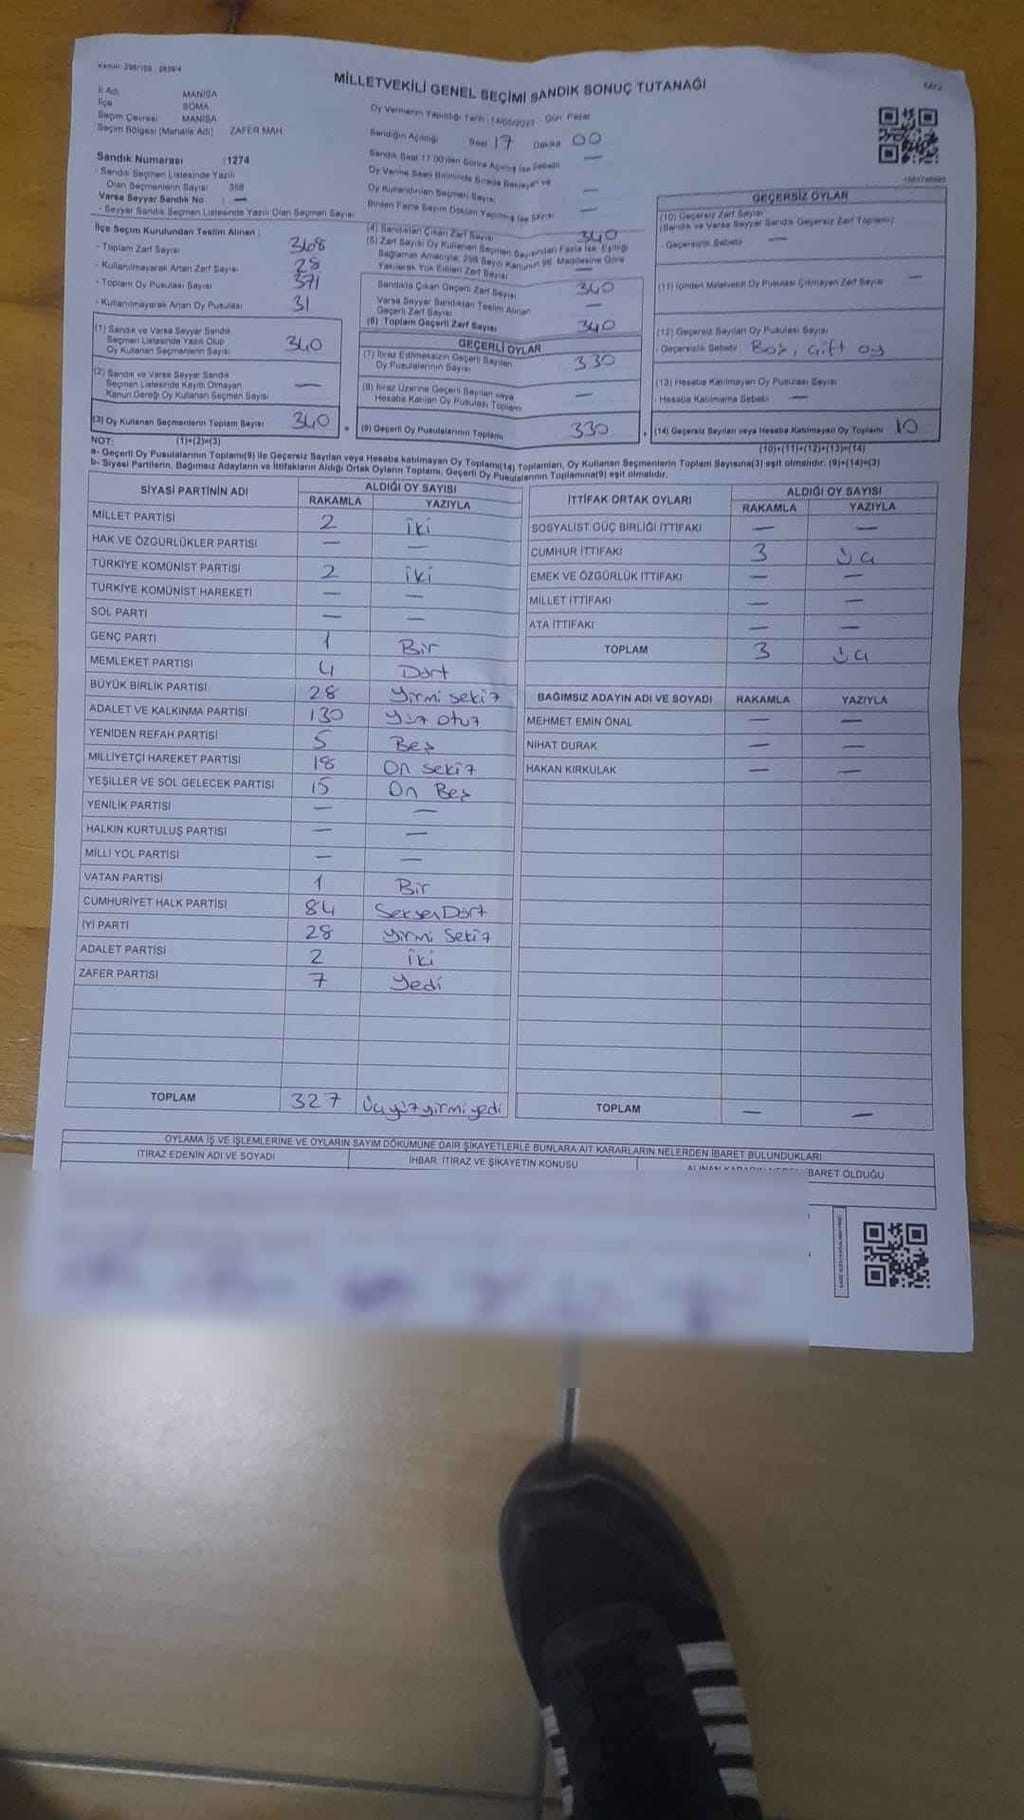 MİLLETVEKİLİ GENEL SEÇİMİ SANDIK SONUÇ TUTANAĞI
İl Adı MANİSA
İlçe SOMA
Seçim Çevresi MANİSA
Seçim Bölgesi (Mahalle Adı) ZAFER MAH
Oy Vermenin Yapıldığı Tarih : Gün: Pazar
Sandığın Açıldığı Saat 17 Dakika 00
Sandık Saat 17:00'den Sonra Açılmış İse Sebebi —
Oy Kullandırılan Seçmen Sayısı —
Birden Fazla Sayım Döküm Yapılmış İse Sayısı —
Sandık Numarası :1274
- Sandık Seçmen Listesinde Yazılı
Olan Seçmenlerin Sayısı 358
Varsa Seyyar Sandık No : —
- Seyyar Sandık Seçmen Listesinde Yazılı Olan Seçmen Sayısı
İlçe Seçim Kurulundan Teslim Alınan :
- Toplam Zarf Sayısı 368
- Kullanılmayarak Artan Zarf Sayısı 28
- Toplam Oy Pusulası Sayısı 371
- Kullanılmayarak Artan Oy Pusulası 31
(1) Sandık ve Varsa Seyyar Sandık
Seçmen Listesinde Yazılı Olup
Oy Kullanan Seçmenlerin Sayısı 340
(2) Sandık ve Varsa Seyyar Sandık
Seçmen Listesinde Kayıtlı Olmayan
Kanun Gereği Oy Kullanan Seçmen Sayısı —
(3) Oy Kullanan Seçmenlerin Toplam Sayısı 340
(1)+(2)=(3)
(4) Sandıktan Çıkan Zarf Sayısı 340
(5) Zarf Sayısı Oy Kullanan Seçmen Sayısından Fazla İse, Eşitliği
Sağlamak Amacıyla; 298 Sayılı Kanunun 98. Maddesine Göre
Yakılarak Yok Edilen Zarf Sayısı —
Sandıkta Çıkan Geçerli Zarf Sayısı 340
Varsa Seyyar Sandıktan Teslim Alınan
Geçerli Zarf Sayısı —
(6) Toplam Geçerli Zarf Sayısı 340
GEÇERLİ OYLAR
(7) İtiraz Edilmeksizin Geçerli Sayılan
Oy Pusulalarının Sayısı 330
(8) İtiraz Üzerine Geçerli Sayılan veya
Hesaba Katılan Oy Pusulası Toplamı —
(9) Geçerli Oy Pusulalarının Toplamı 330
GEÇERSİZ OYLAR
(10) Geçersiz Zarf Sayısı
(Sandık ve Varsa Seyyar Sandık Geçersiz Zarf Toplamı)
- Geçersizlik Sebebi —
(11) İçinden Milletvekili Oy Pusulası Çıkmayan Zarf Sayısı —
(12) Geçersiz Sayılan Oy Pusulası Sayısı
- Geçersizlik Sebebi Boş, çift oy
(13) Hesaba Katılmayan Oy Pusulası Sayısı
- Hesaba Katılmama Sebebi —
(14) Geçersiz Sayılan veya Hesaba Katılmayan Oy Toplamı 10
(10)+(11)+(12)+(13)=(14)
NOT:
a- Geçerli Oy Pusulalarının Toplamı(9) ile Geçersiz Sayılan veya Hesaba katılmayan Oy Toplamı(14) Toplamları, Oy Kullanan Seçmenlerin Toplam Sayısına(3) eşit olmalıdır. (9)+(14)=(3)
b- Siyasi Partilerin, Bağımsız Adayların ve İttifakların Aldığı Ortak Oyların Toplamı, Geçerli Oy Pusulalarının Toplamına(9) eşit olmalıdır.
SİYASİ PARTİNİN ADI ALDIĞI OY SAYISI
RAKAMLA YAZIYLA
MİLLET PARTİSİ 2 iki
HAK VE ÖZGÜRLÜKLER PARTİSİ — —
TÜRKİYE KOMÜNİST PARTİSİ 2 iki
TÜRKİYE KOMÜNİST HAREKETİ — —
SOL PARTİ — —
GENÇ PARTİ 1 Bir
MEMLEKET PARTİSİ 4 Dört
BÜYÜK BİRLİK PARTİSİ 28 Yirmi sekiz
ADALET VE KALKINMA PARTİSİ 130 Yüz otuz
YENİDEN REFAH PARTİSİ 5 Beş
MİLLİYETÇİ HAREKET PARTİSİ 18 On sekiz
YEŞİLLER VE SOL GELECEK PARTİSİ 15 On Beş
YENİLİK PARTİSİ — —
HALKIN KURTULUŞ PARTİSİ — —
MİLLİ YOL PARTİSİ — —
VATAN PARTİSİ 1 Bir
CUMHURİYET HALK PARTİSİ 84 Seksen Dört
İYİ PARTİ 28 Yirmi Sekiz
ADALET PARTİSİ 2 iki
ZAFER PARTİSİ 7 Yedi
TOPLAM 327 Üçyüzyirmiyedi
İTTİFAK ORTAK OYLARI ALDIĞI OY SAYISI
RAKAMLA YAZIYLA
SOSYALİST GÜÇ BİRLİĞİ İTTİFAKI — —
CUMHUR İTTİFAKI 3 Üç
EMEK VE ÖZGÜRLÜK İTTİFAKI — —
MİLLET İTTİFAKI — —
ATA İTTİFAKI — —
TOPLAM 3 Üç
BAĞIMSIZ ADAYIN ADI VE SOYADI RAKAMLA YAZIYLA
MEHMET EMİN ÖNAL — —
NİHAT DURAK — —
HAKAN KIRKULAK — —
TOPLAM — —
OYLAMA İŞ VE İŞLEMLERİNE VE OYLARIN SAYIM DÖKÜMÜNE DAİR ŞİKAYETLERLE BUNLARA AİT KARARLARIN NELERDEN İBARET BULUNDUKLARI
İTİRAZ EDENİN ADI VE SOYADI İHBAR, İTİRAZ VE ŞİKAYETİN KONUSU İBARET OLDUĞU